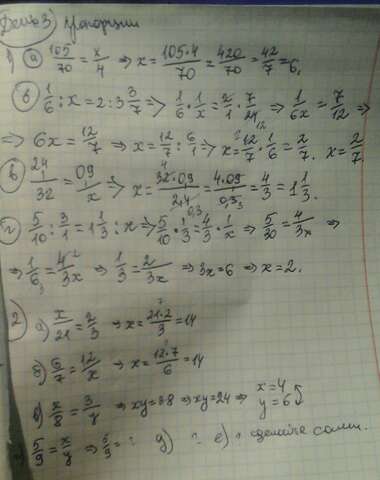 День 3) пропорции
1) а) 105/70 = x/4 => x = 105·4/70 = 420/70 = 42/7 = 6.
б) 1/6 : x = 2 : 3 3/7 => 1/6 · 1/x = 2/1 · 7/24 => 1/6x = 7/12 =>
=> 6x = 12/7 => x = 12/7 : 6/1 => x = 12/7 · 1/6 = 2/7. x = 2/7.
в) 24/32 = 0,9/x => x = 32·0,9/2,4 = 4·0,9/0,3 = 4/3 = 1 1/3.
г) 5/10 : 3/1 = 1 1/3 : x => 5/10 · 1/3 = 4/3 · 1/x => 5/30 = 4/3x =>
=> 1/6 = 4/3x => 1/3 = 2/3x => 3x = 6 => x = 2.
2 а) x/21 = 2/3 => x = 21·2/3 = 14
б) 6/7 = 12/x => x = 12·7/6 = 14
в) x/8 = 3/y => xy = 3·8 => xy = 24 => x = 4 y = 6
г) 5/9 = x/y => 5/9 = ? д) ? е) сделайте сами.